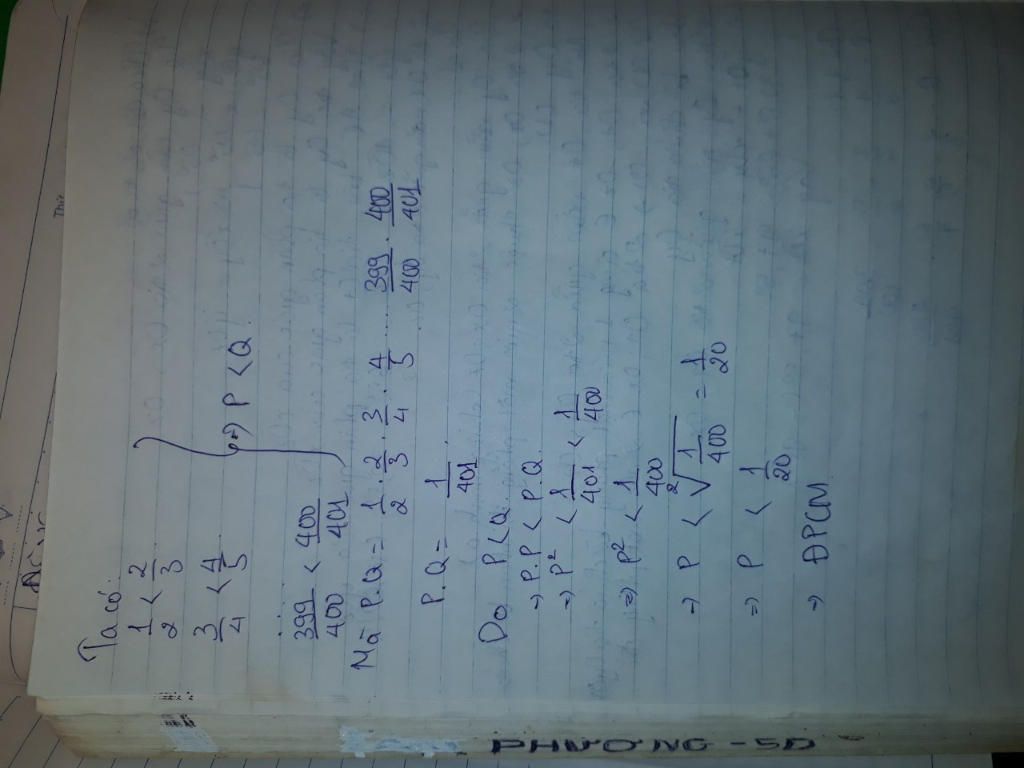 Ta có:
1/2 < 2/3
3/4 < 4/5
⋮
399/400 < 400/401
=> P < Q.
Mà P.Q = 1/2 . 2/3 . 3/4 . 4/5 ..... 399/400 . 400/401
P.Q = 1/401
Do P < Q.
=> P.P < P.Q.
=> P² < 1/401 < 1/400
=> P² < 1/400
=> P < ²√(1/400) = 1/20
=> P < 1/20
=> ĐPCM
PHƯƠNG - 5D